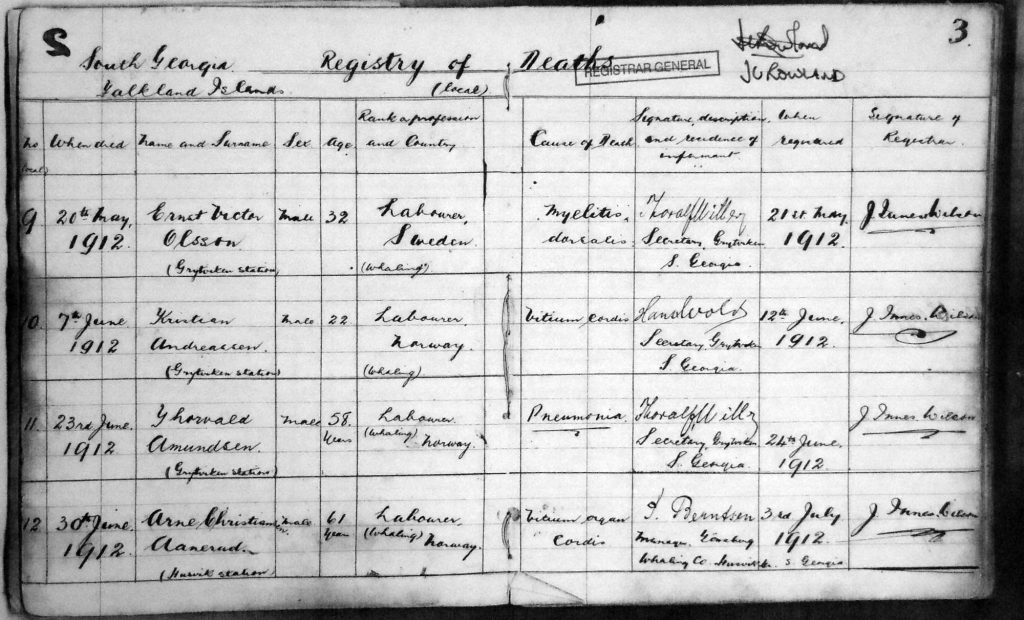 2
3.
South Georgia Registry of Deaths
Falkland Islands (local)
REGISTRAR GENERAL
JCROWLAND
No (local) When died Name and Surname Sex Age Rank or profession and Country Cause of Death Signature, description and residence of informant When registered Signature of Registrar
9 20th May, Ernst Victor Male 32 Labourer, Myelitis 21st May, J Innes Wilson
1912 Olsson Sweden dorsalis Secretary, Grytviken 1912.
(Grytviken station) (Whaling) S. Georgia
10. 7th June Kristian Male 22 Labourer, Vitium Cordis 12th June, J Innes. Wilson
1912 Andreassen. Norway. Secretary, Grytviken 1912.
(Grytviken station) (Whaling) S Georgia.
11. 23rd June, Male 58 Labourer Pneumonia J Innes Wilson
1912 Amundsen. Years (Whaling) Norway. Secretary, Grytviken 24th June,
(Grytviken station) S. Georgia 1912
12 30th June, Arne Christian Male 61 Labourer Vitium organ Berntsen 3rd July J Innes. Wilson
1912 Aanerud. Years (Whaling) Norway. Cordis Manager, 1912
(Husvik station Whaling Co. S Georgia